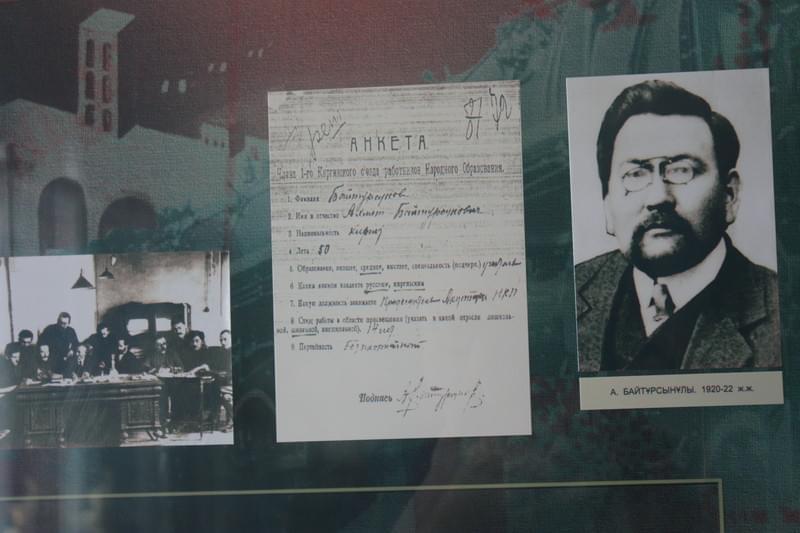 АНКЕТА
Члена 1-го Киргизского с'езда работников Народного Образования.
1. Фамилия Байтурсунов
2. Имя и отчество Ахмет Байтурсунович
3. Национальность киргиз
4. Лета 50
5. Образование, низшее, среднее, высшее, специальность (подчерк.)
6. Каким языком владеете русским, киргизским
7. Какую должность занимаете
8. Стаж работы в области просвещения (указать в какой отрасли дошколь-
ной, школьной, внешкольной). 14 лет
9. Партийность Безпартийный
Подпись
А. БАЙТҰРСЫНҰЛЫ. 1920-22 ж.ж.